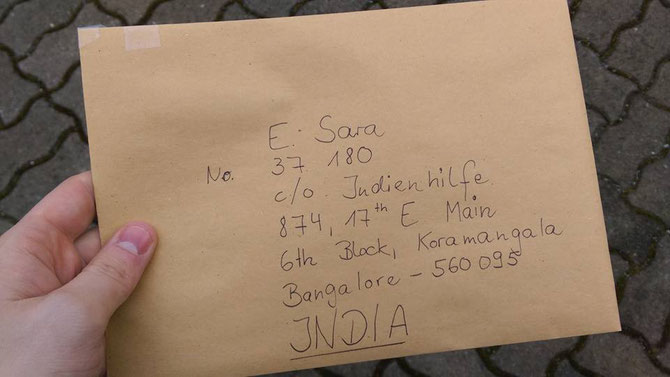 E. Sara
No. 37 180
c/o Indienhilfe
874, 17th E Main
6th Block, Koramangala
Bangalore - 560 095
INDIA